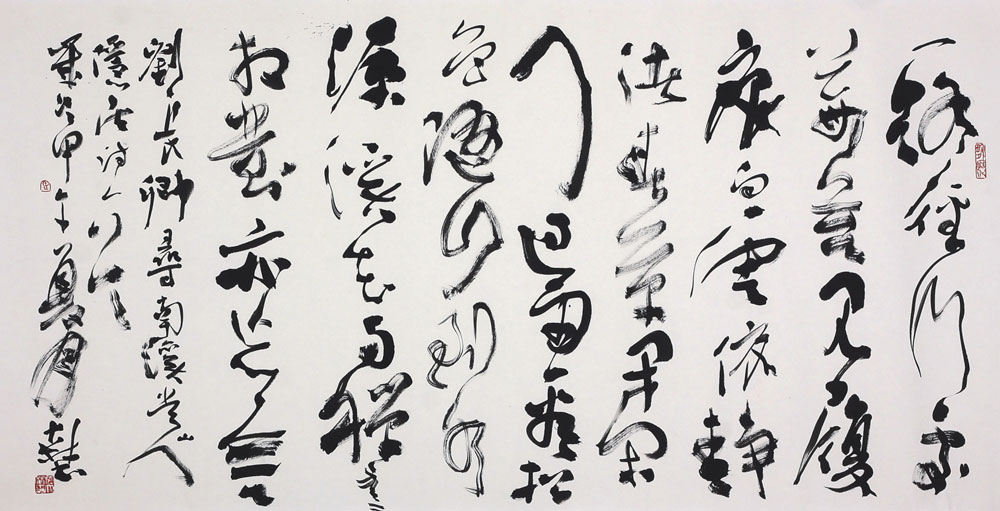 一路經行處
莓苔見履
痕白雲依靜
渚春草閉閑
門過雨看松
色隨山到水
源溪花與禪意
相對亦忘言
劉長卿尋南溪常山人
隱居詩
歲次甲午夏月